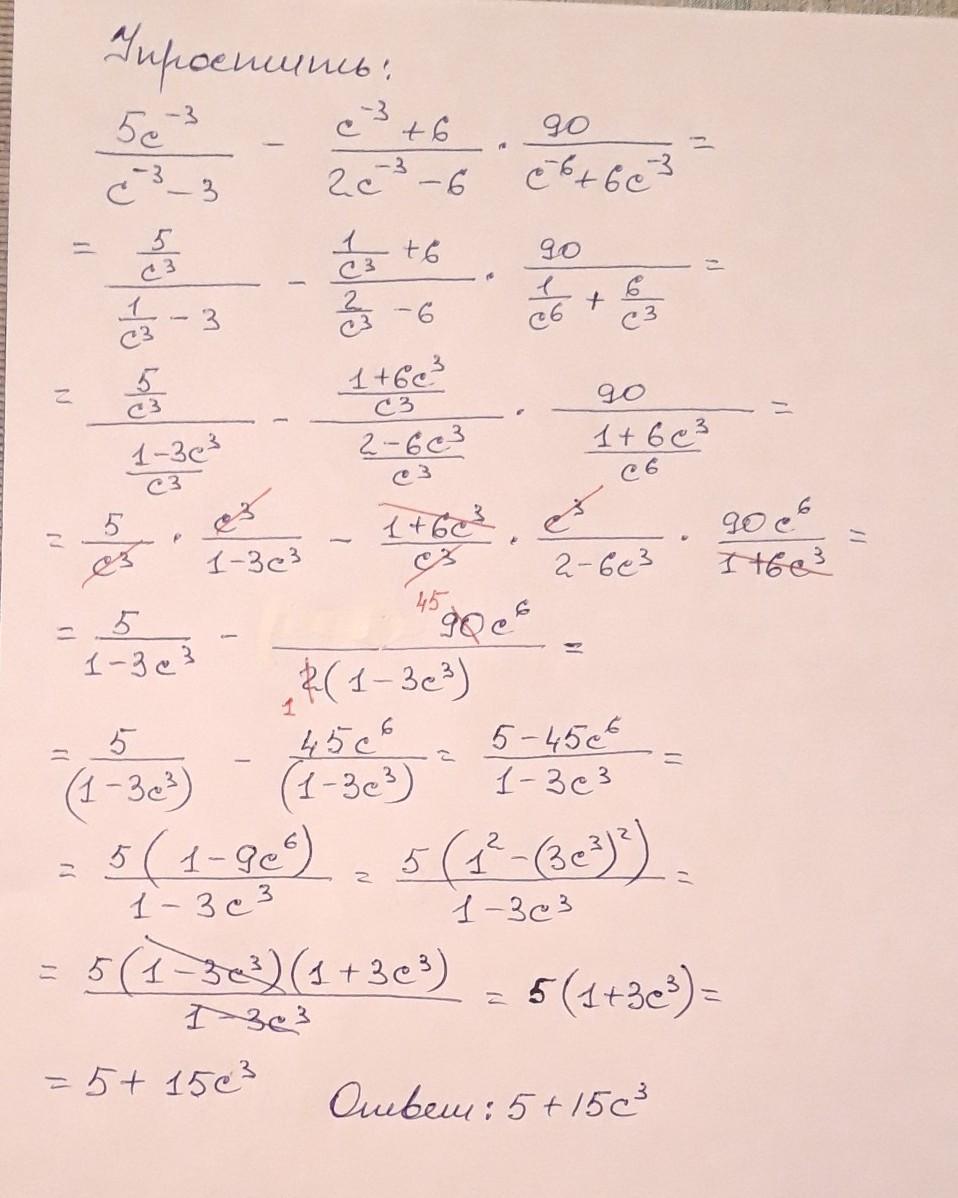 Упростить:
\frac{5c^{-3}}{c^{-3}-3} - \frac{c^{-3}+6}{2c^{-3}-6} \cdot \frac{90}{c^{-6}+6c^{-3}} =
= \frac{\frac{5}{c^3}}{\frac{1}{c^3}-3} - \frac{\frac{1}{c^3}+6}{\frac{2}{c^3}-6} \cdot \frac{90}{\frac{1}{c^6}+\frac{6}{c^3}} =
= \frac{\frac{5}{c^3}}{\frac{1-3c^3}{c^3}} - \frac{\frac{1+6c^3}{c^3}}{\frac{2-6c^3}{c^3}} \cdot \frac{90}{\frac{1+6c^3}{c^6}} =
= \frac{5}{c^3} \cdot \frac{c^3}{1-3c^3} - \frac{1+6c^3}{c^3} \cdot \frac{c^3}{2-6c^3} \cdot \frac{90c^6}{1+6c^3} =
= \frac{5}{1-3c^3} - \frac{\overset{45}{90}c^6}{\underset{1}{2}(1-3c^3)} =
= \frac{5}{(1-3c^3)} - \frac{45c^6}{(1-3c^3)} = \frac{5-45c^6}{1-3c^3} =
= \frac{5(1-9c^6)}{1-3c^3} = \frac{5(1^2-(3c^3)^2)}{1-3c^3} =
= \frac{5(1-3c^3)(1+3c^3)}{1-3c^3} = 5(1+3c^3) =
= 5+15c^3 Ответ: 5+15c^3